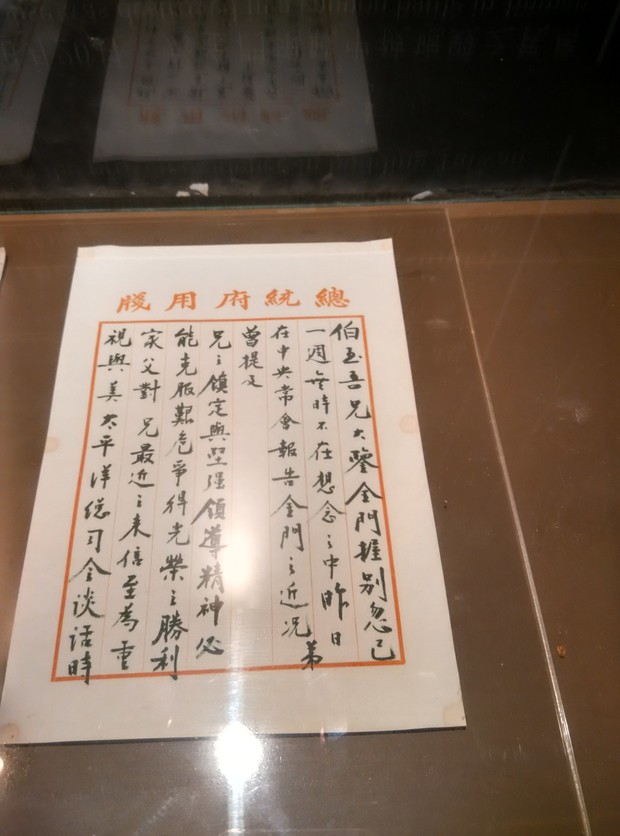 總統府用牋
伯玉吾兄大鑒金門握別忽已
一週無時不在想念之中昨日
在中央常會報告金門之近况弟
曾提及
兄之鎮定與堅强領導精神必
能克服艱危爭得光榮之勝利
家父對兄最近之来信至為重
視與美太平洋總司令谈话時